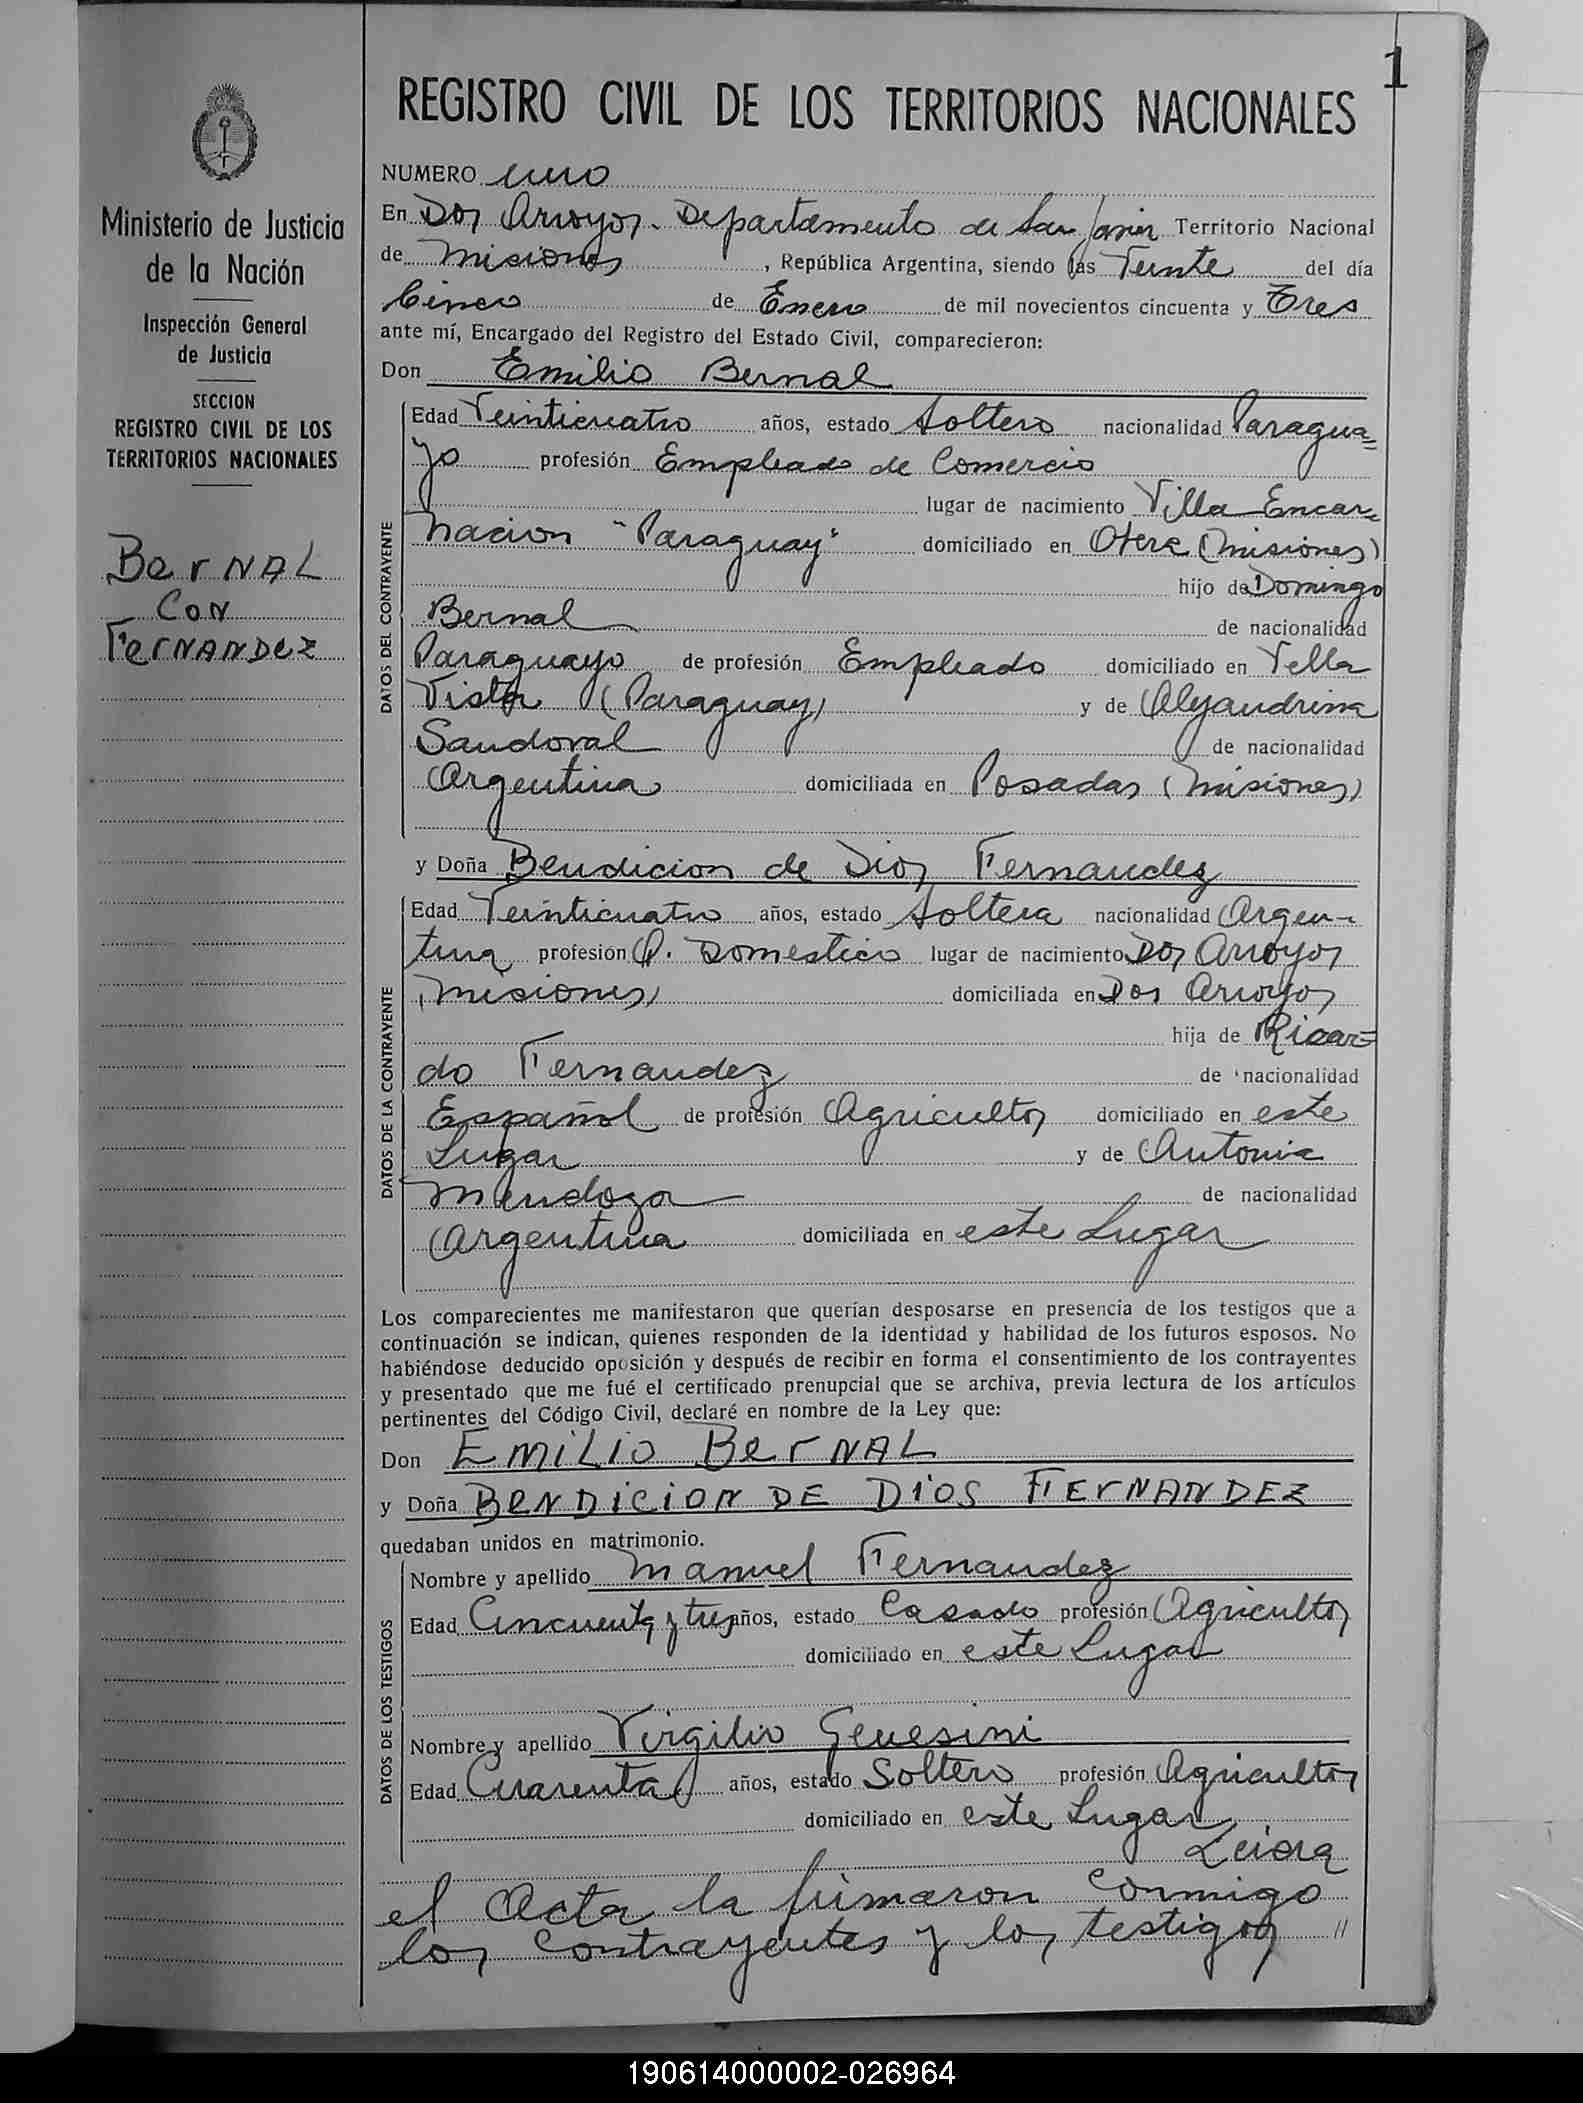 1
REGISTRO CIVIL DE LOS TERRITORIOS NACIONALES
Ministerio de Justicia
de la Nación
Inspección General
de Justicia
SECCION
REGISTRO CIVIL DE LOS
TERRITORIOS NACIONALES
BerNAL
CON
FerNANDez
NUMERO uno
En Dos Arroyos. Departamento de San Javier Territorio Nacional
de Misiones, República Argentina, siendo las Veinte del día
Cinco de Enero de mil novecientos cincuenta y Tres
ante mí, Encargado del Registro del Estado Civil, comparecieron:
Don Emilio Bernal
DATOS DEL CONTRAYENTE
Edad Veinticuatro años, estado Soltero nacionalidad Paragua=
yo profesión Empleado de Comercio
lugar de nacimiento Villa Encar=
nacion "Paraguay" domiciliado en (Misiones)
hijo de Domingo
Bernal de nacionalidad
Paraguayo de profesión Empleado domiciliado en Vella
Vista (Paraguay) y de Alejandrina
Sandoval de nacionalidad
Argentina domiciliada en Posadas (Misiones)
y Doña Bendicion de Dios Fernandez
DATOS DE LA CONTRAYENTE
Edad Veinticuatro años, estado Soltera nacionalidad Argen-
tina profesión Q. Domestico lugar de nacimiento Dos Arroyos
(Misiones) domiciliada en Dos Arroyos
hija de Ricar=
do Fernandez de nacionalidad
Español de profesión Agricultor domiciliado en este
Lugar y de Antonia
Mendoza de nacionalidad
Argentina domiciliada en este Lugar
Los comparecientes me manifestaron que querían desposarse en presencia de los testigos que a
continuación se indican, quienes responden de la identidad y habilidad de los futuros esposos. No
habiéndose deducido oposición y después de recibir en forma el consentimiento de los contrayentes
y presentado que me fué el certificado prenupcial que se archiva, previa lectura de los artículos
pertinentes del Código Civil, declaré en nombre de la Ley que:
Don EMILIO BerNAL
y Doña BeNDICION DE DIOS FERNANDEZ
quedaban unidos en matrimonio.
DATOS DE LOS TESTIGOS
Nombre y apellido Manuel Fernandez
Edad Cincuenta y tres años, estado Casado profesión Agricultor
domiciliado en este Lugar
Nombre y apellido Virgilio Genesini
Edad Cuarenta años, estado Soltero profesión Agricultor
domiciliado en este Lugar
Leida
el Acta la firmaron conmigo
los contrayentes y los testigos //
190614000002-026964